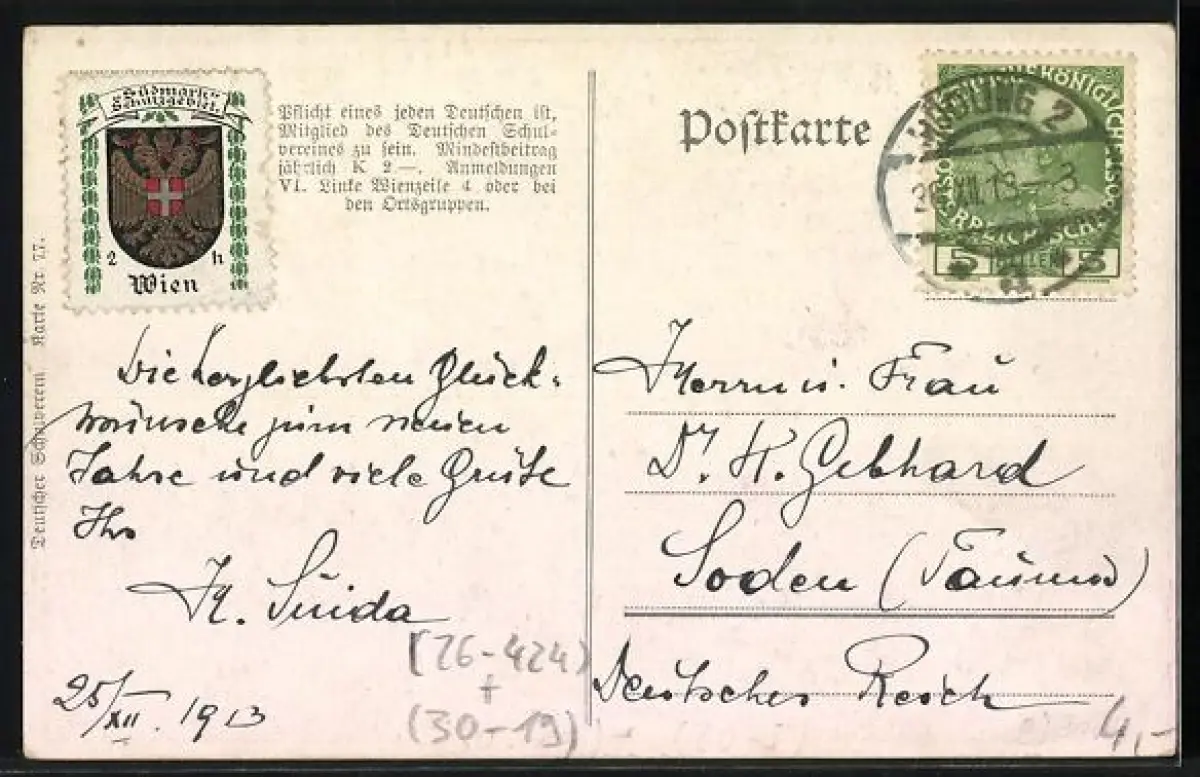 Südmark-
Schutzgebiet.
2 h
Wien
Pflicht eines jeden Deutschen ist,
Mitglied des Deutschen Schul-
vereines zu sein. Mindestbeitrag
jährlich K 2.—. Anmeldungen
VI. Linke Wienzeile 4 oder bei
den Ortsgruppen.
Deutscher Schulverein Karte Nr 77.
Die herzlichsten Glück-
wünsche zum neuen
Jahre und viele Grüße
Ihr
H. Suida
25/XII. 1913
(26-424)
+
(30-19)
Postkarte
MÖDLING 2
XII.13
5 HELLER 5
Herrn u. Frau
Dr. K. Gebhard
Soden (Taunus)
Deutsches Reich
4,-